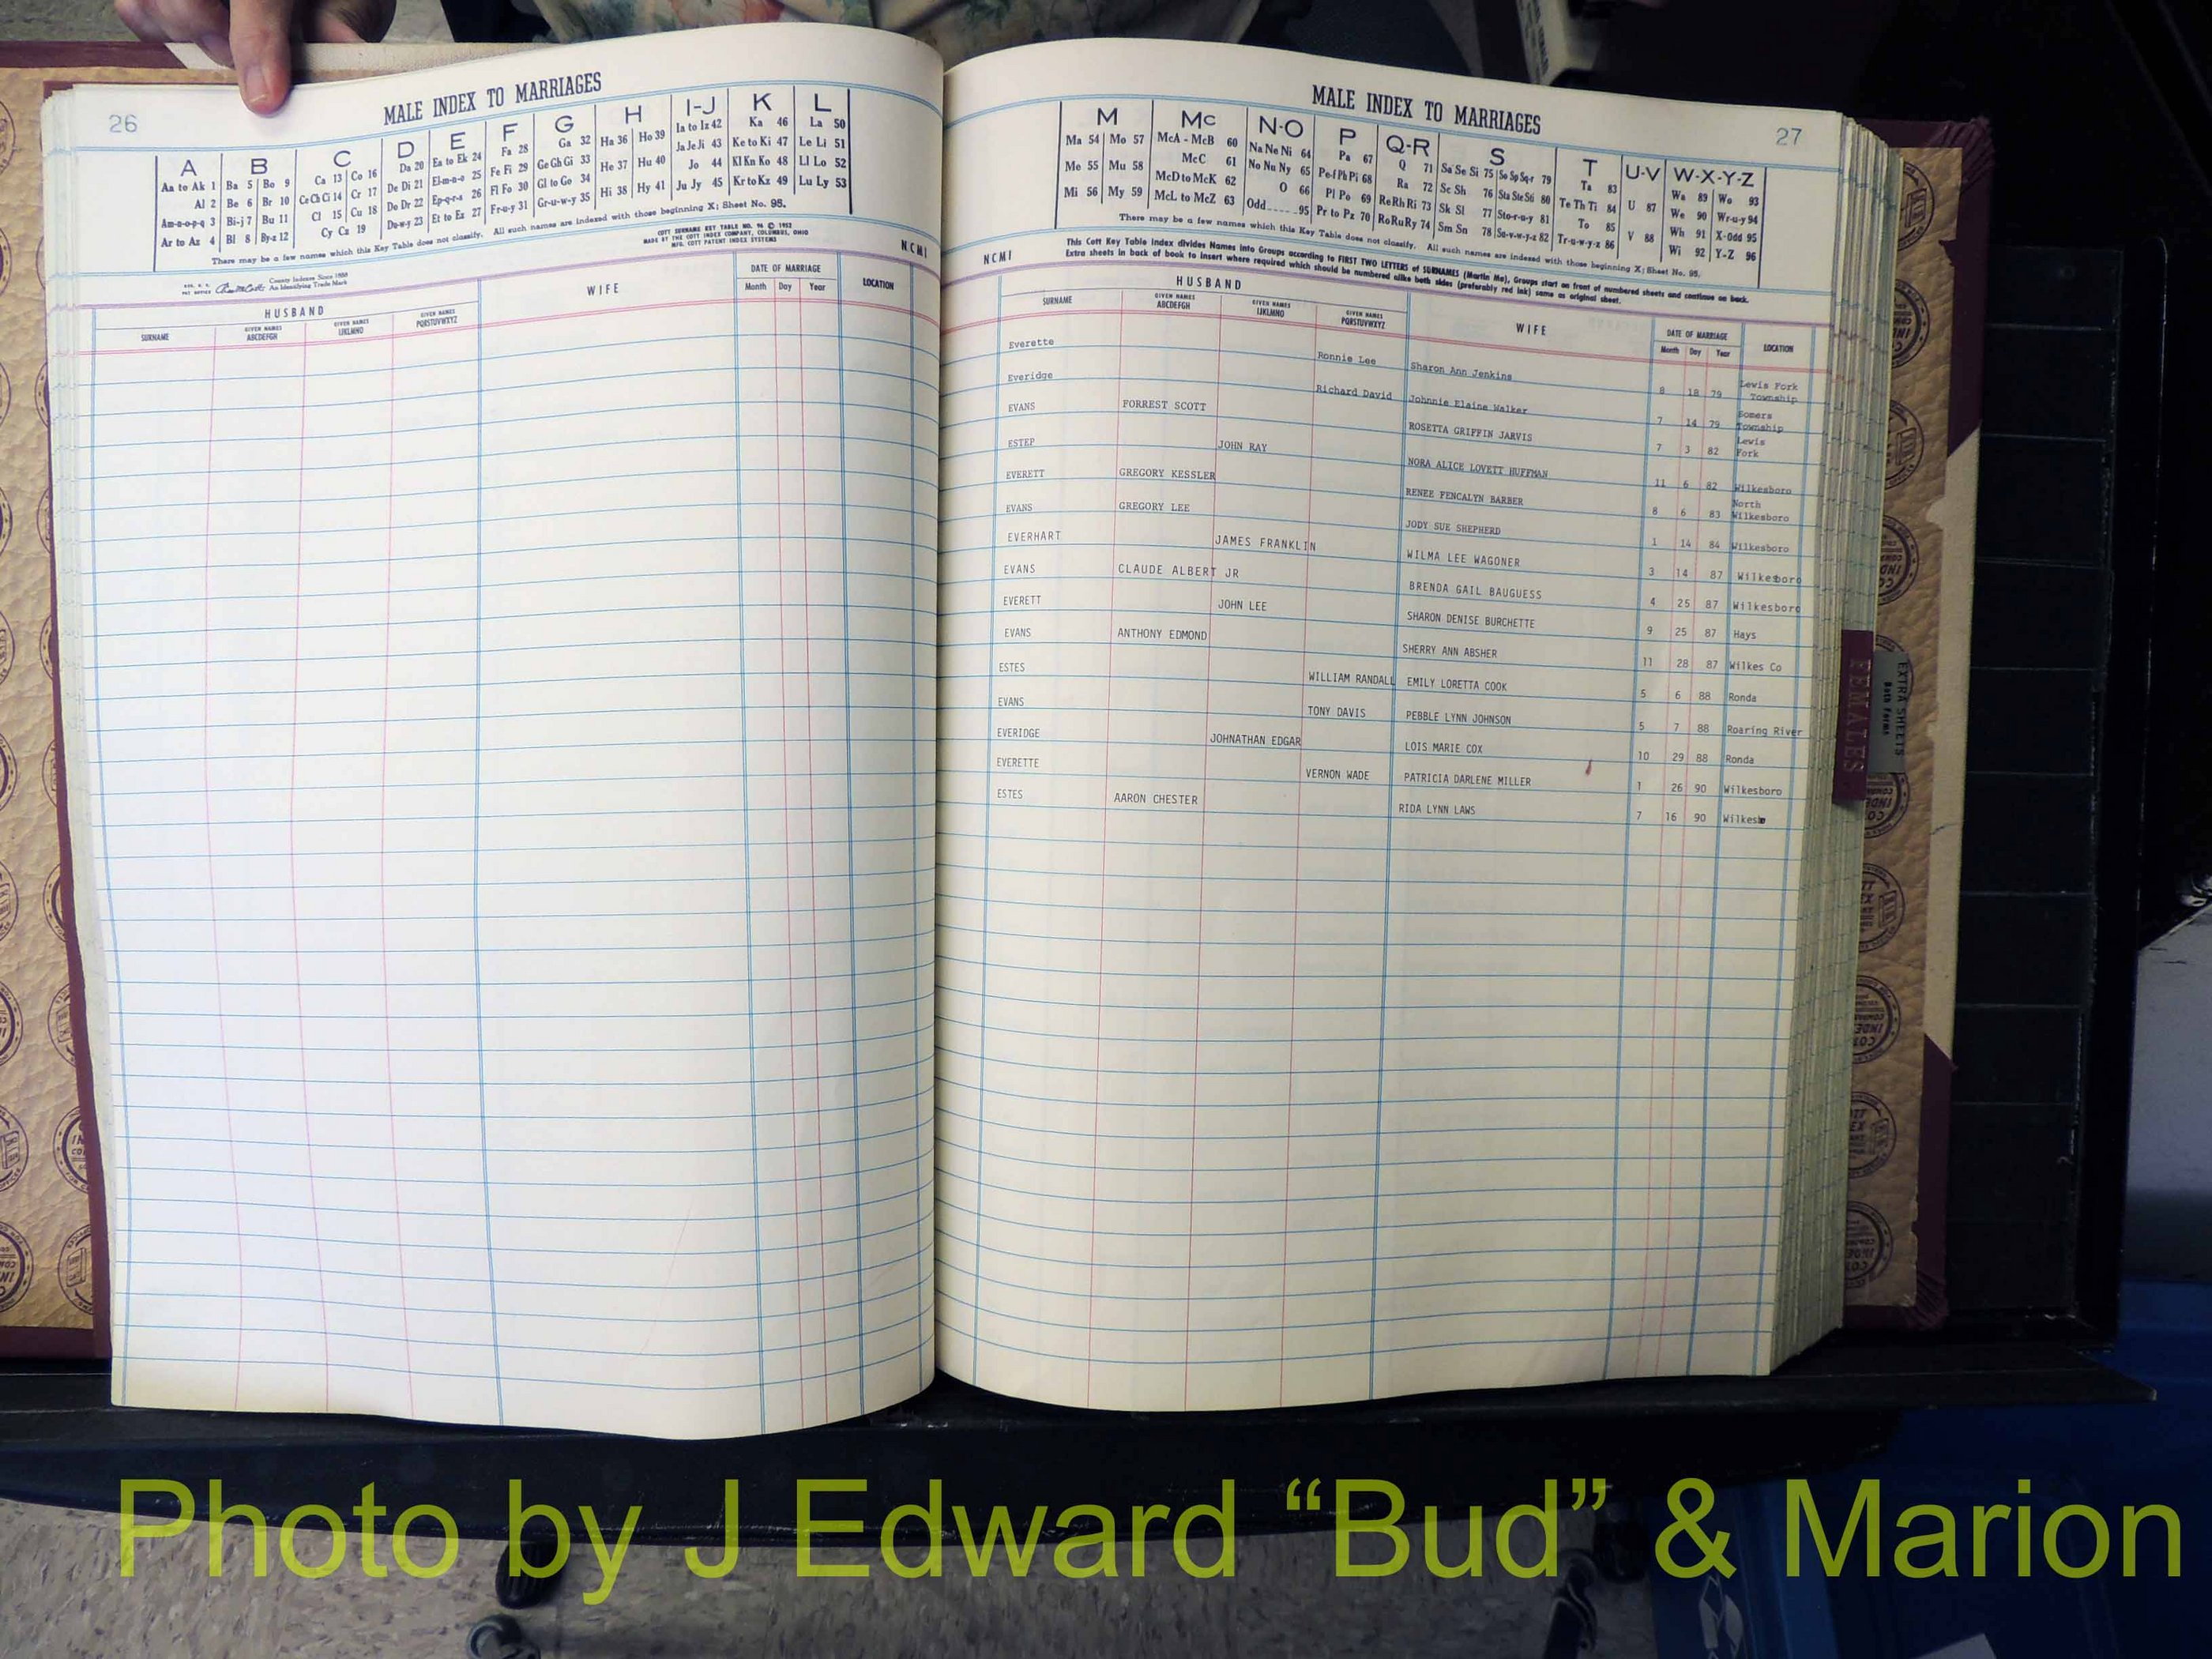 26
MALE INDEX TO MARRIAGES
A B C D E F G H I-J K L
Aa to Ak 1 Ba 5 Bo 9 Ca 13 Co 16 Da 20 Ea to Ek 24 Fa 28 Ga 32 Ha 36 Ho 39 Ia to Iz 42 Ka 46 La 50
Al 2 Be 6 Br 10 Ce Ch Ci 14 Cr 17 De Di 21 El-m-n-o 25 Fe Fi 29 Ge Gh Gi 33 He 37 Hu 40 Ja Je Ji 43 Ke to Ki 47 Le Li 51
Am-n-o-p-q 3 Bi-j 7 Bu 11 Cl 15 Cu 18 De Dr 22 Ep-q-r-s 26 Fl Fo 30 Gl to Go 34 Hi 38 Hy 41 Jo 44 Kl Kn Ko 48 Ll Lo 52
Ar to Az 4 Bl 8 By-z 12 Cy Cz 19 Du-w-y 23 Et to Ez 27 Fr-u-y 31 Gr-u-w-y 35 Ju Jy 45 Kr to Kz 49 Lu Ly 53
There may be a few names which this Key Table does not classify. All such names are indexed with those beginning X; Sheet No. 95.
COTT SURNAME KEY TABLE NO. 96 © 1952
MADE BY THE COTT INDEX COMPANY, COLUMBUS, OHIO
MFG. COTT PATENT INDEX SYSTEMS
NCMI
County Indexes Since 1888
An Identifying Trade Mark
HUSBAND WIFE DATE OF MARRIAGE LOCATION
SURNAME GIVEN NAMES ABCDEFGH GIVEN NAMES IJKLMNO GIVEN NAMES PQRSTUVWXYZ Month Day Year
27
MALE INDEX TO MARRIAGES
M Mc N-O P Q-R S T U-V W-X-Y-Z
Ma 54 Mo 57 McA - McB 60 Na Ne Ni 64 Pa 67 Q 71 Sa Se Si 75 So Sp Sq-r 79 Ta 83 U 87 Wa 89 Wo 93
Me 55 Mu 58 McC 61 No Nu Ny 65 Pe-f Ph Pi 68 Ra 72 Sc Sh 76 Sta Ste Sti 80 Te Th Ti 84 V 88 We 90 Wr-u-y 94
Mi 56 My 59 McD to McK 62 O 66 Pl Po 69 Re Rh Ri 73 Sk Sl 77 Sto-r-u-y 81 To 85 Wh 91 X-Odd 95
McL to McZ 63 Odd 95 Pr to Pz 70 Ro Ru Ry 74 Sm Sn 78 Su-v-w-y-z 82 Tr-u-w-y-z 86 Wi 92 Y-Z 96
There may be a few names which this Key Table does not classify. All such names are indexed with those beginning X; Sheet No. 95.
NCMI
This Cott Key Table Index divides Names into Groups according to FIRST TWO LETTERS of SURNAMES (Martin Ma), Groups start on front of numbered sheets and continue on back.
Extra sheets in back of book to insert where required which should be numbered alike both sides (preferably red ink) same as original sheet.
HUSBAND WIFE DATE OF MARRIAGE LOCATION
SURNAME GIVEN NAMES ABCDEFGH GIVEN NAMES IJKLMNO GIVEN NAMES PQRSTUVWXYZ Month Day Year
Everette Ronnie Lee Sharon Ann Jenkins 8 18 79 Lewis Fork Township
Everidge Richard David Johnnie Elaine Walker 7 14 79 Somers Township
EVANS FORREST SCOTT ROSETTA GRIFFIN JARVIS 7 3 82 Lewis Fork
ESTEP JOHN RAY NORA ALICE LOVETT HUFFMAN 11 6 82 Wilkesboro
EVERETT GREGORY KESSLER RENEE FENCALYN BARBER 8 6 83 North Wilkesboro
EVANS GREGORY LEE JODY SUE SHEPHERD 1 14 84 Wilkesboro
EVERHART JAMES FRANKLIN WILMA LEE WAGONER 3 14 87 Wilkesboro
EVANS CLAUDE ALBERT JR BRENDA GAIL BAUGUESS 4 25 87 Wilkesboro
EVERETT JOHN LEE SHARON DENISE BURCHETTE 9 25 87 Hays
EVANS ANTHONY EDMOND SHERRY ANN ABSHER 11 28 87 Wilkes Co
ESTES WILLIAM RANDALL EMILY LORETTA COOK 5 6 88 Ronda
EVANS TONY DAVIS PEBBLE LYNN JOHNSON 5 7 88 Roaring River
EVERIDGE JOHNATHAN EDGAR LOIS MARIE COX 10 29 88 Ronda
EVERETTE VERNON WADE PATRICIA DARLENE MILLER 1 26 90 Wilkesboro
ESTES AARON CHESTER RIDA LYNN LAWS 7 16 90
FEMALES
EXTRA SHEETS
Both Forms
Photo by J Edward “Bud” & Marion